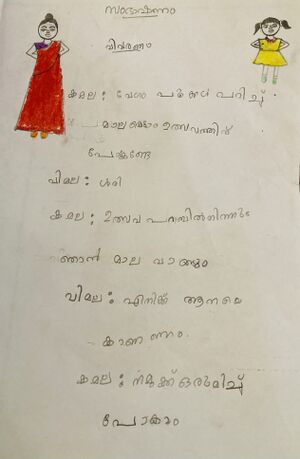 സംഭാഷണം
വിവരണം
കമല: വേഗം പൂക്കൾ പറിച്ച്
ഉത്സവത്തിന്
പോകണ്ടേ
വിമല: ശരി
കമല: ഉത്സവ പറമ്പിൽ നിന്നും
ഞാൻ മാല വാങ്ങും
വിമല: എനിക്ക് ആനയെ
കാണണം
കമല: നമുക്ക് ഒരുമിച്ച്
പോകാം